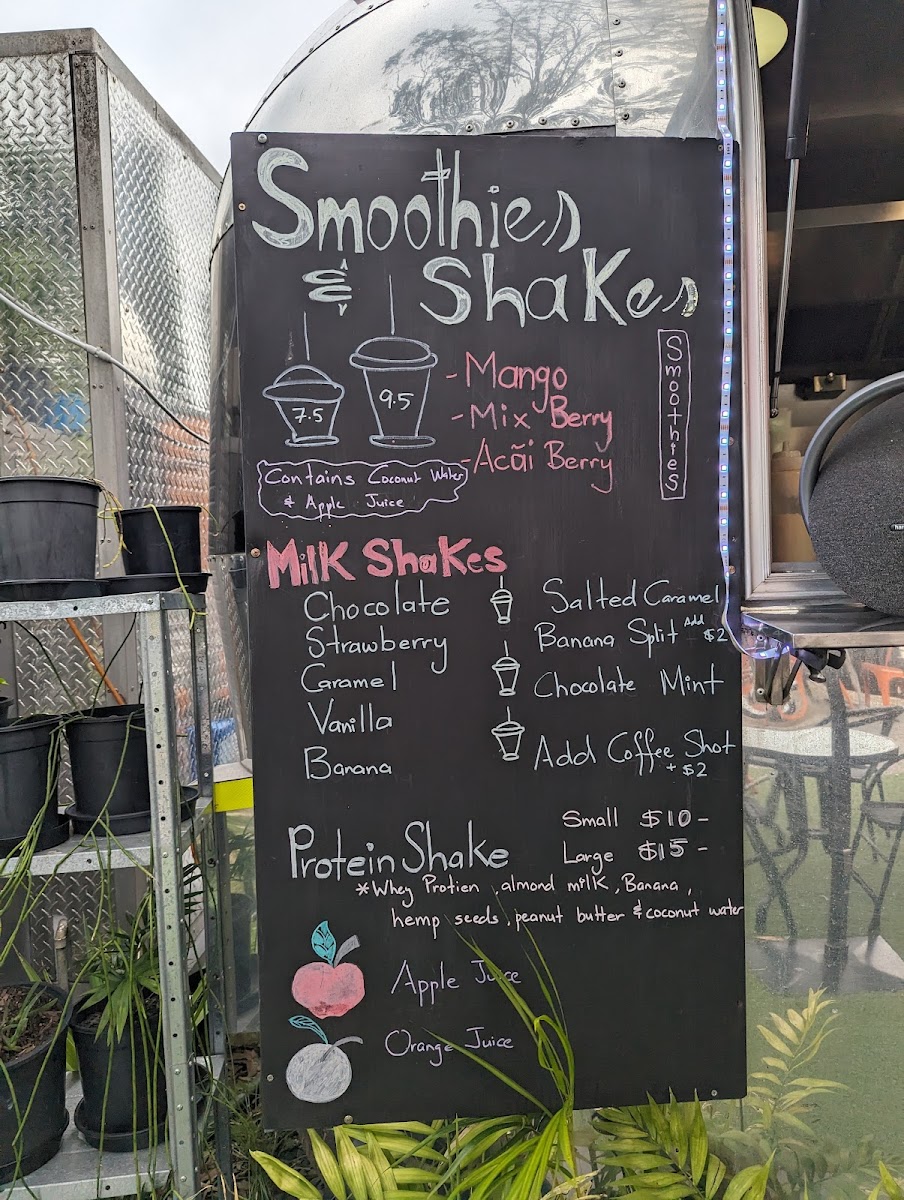 Smoothies
& Shakes
7.5
9.5
Smoothies
- Mango
- Mix Berry
- Acãi Berry
Contains Coconut Water
& Apple Juice
Milk Shakes
Chocolate
Strawberry
Caramel
Vanilla
Banana
Salted Caramel
Banana Split Add $2
Chocolate Mint
Add Coffee Shot
+ $2
Protein Shake
Small $10 -
Large $15 -
*Whey Protien, almond milk, Banana,
hemp seeds, peanut butter & coconut water
Apple Juice
Orange Juice